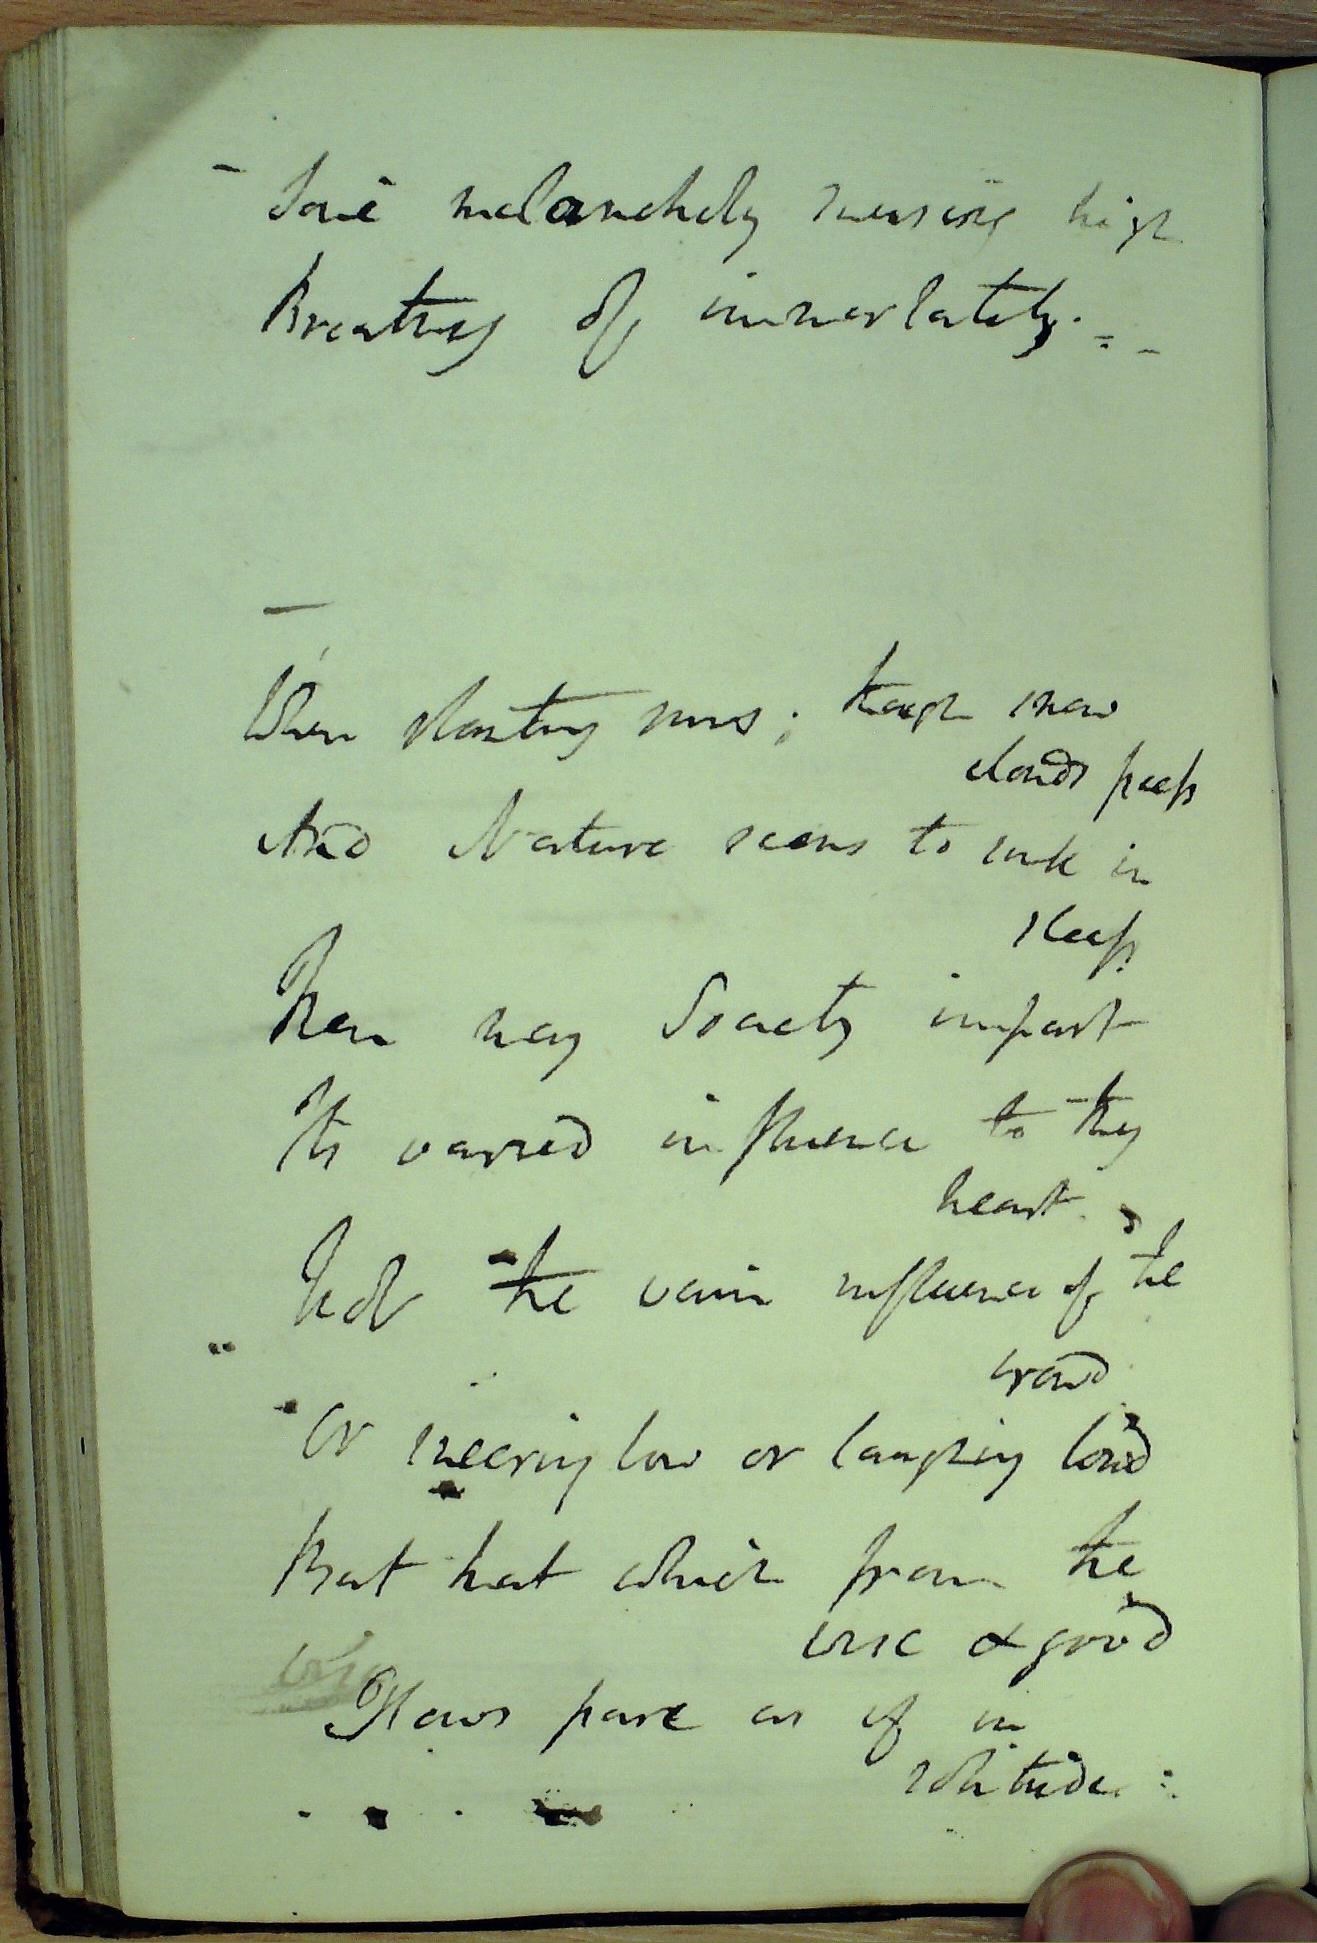 Some melancholy musing high
Breathing of immortality. - -
When slanting suns, through snow
clouds peep
And Nature seems to sink in
sleep
Then may Society impart
Its varied influence to thy
heart,
Not the vain influence of the
crowd
Or sneering low or laughing loud
But that which from the
wise & good
Flows pure as if in
solitude: